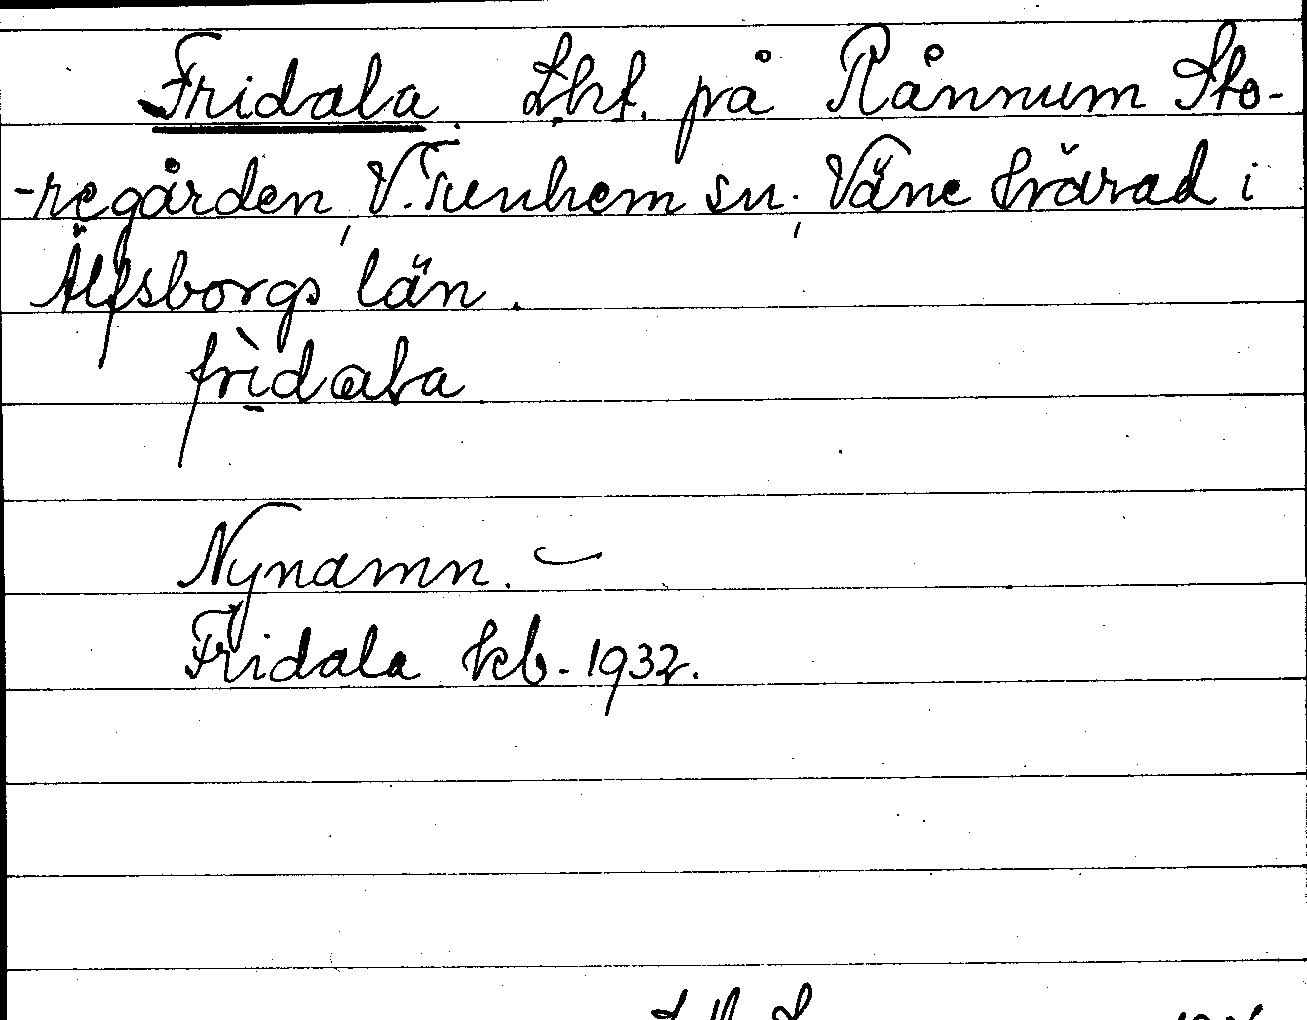 Fridala. Lht. på Rånnum Sto-
-regården, V. Tunhem sn, Väne härad i
Älfsborgs län.
frìdala
Nynamn. —
Fridala kb. 1932.